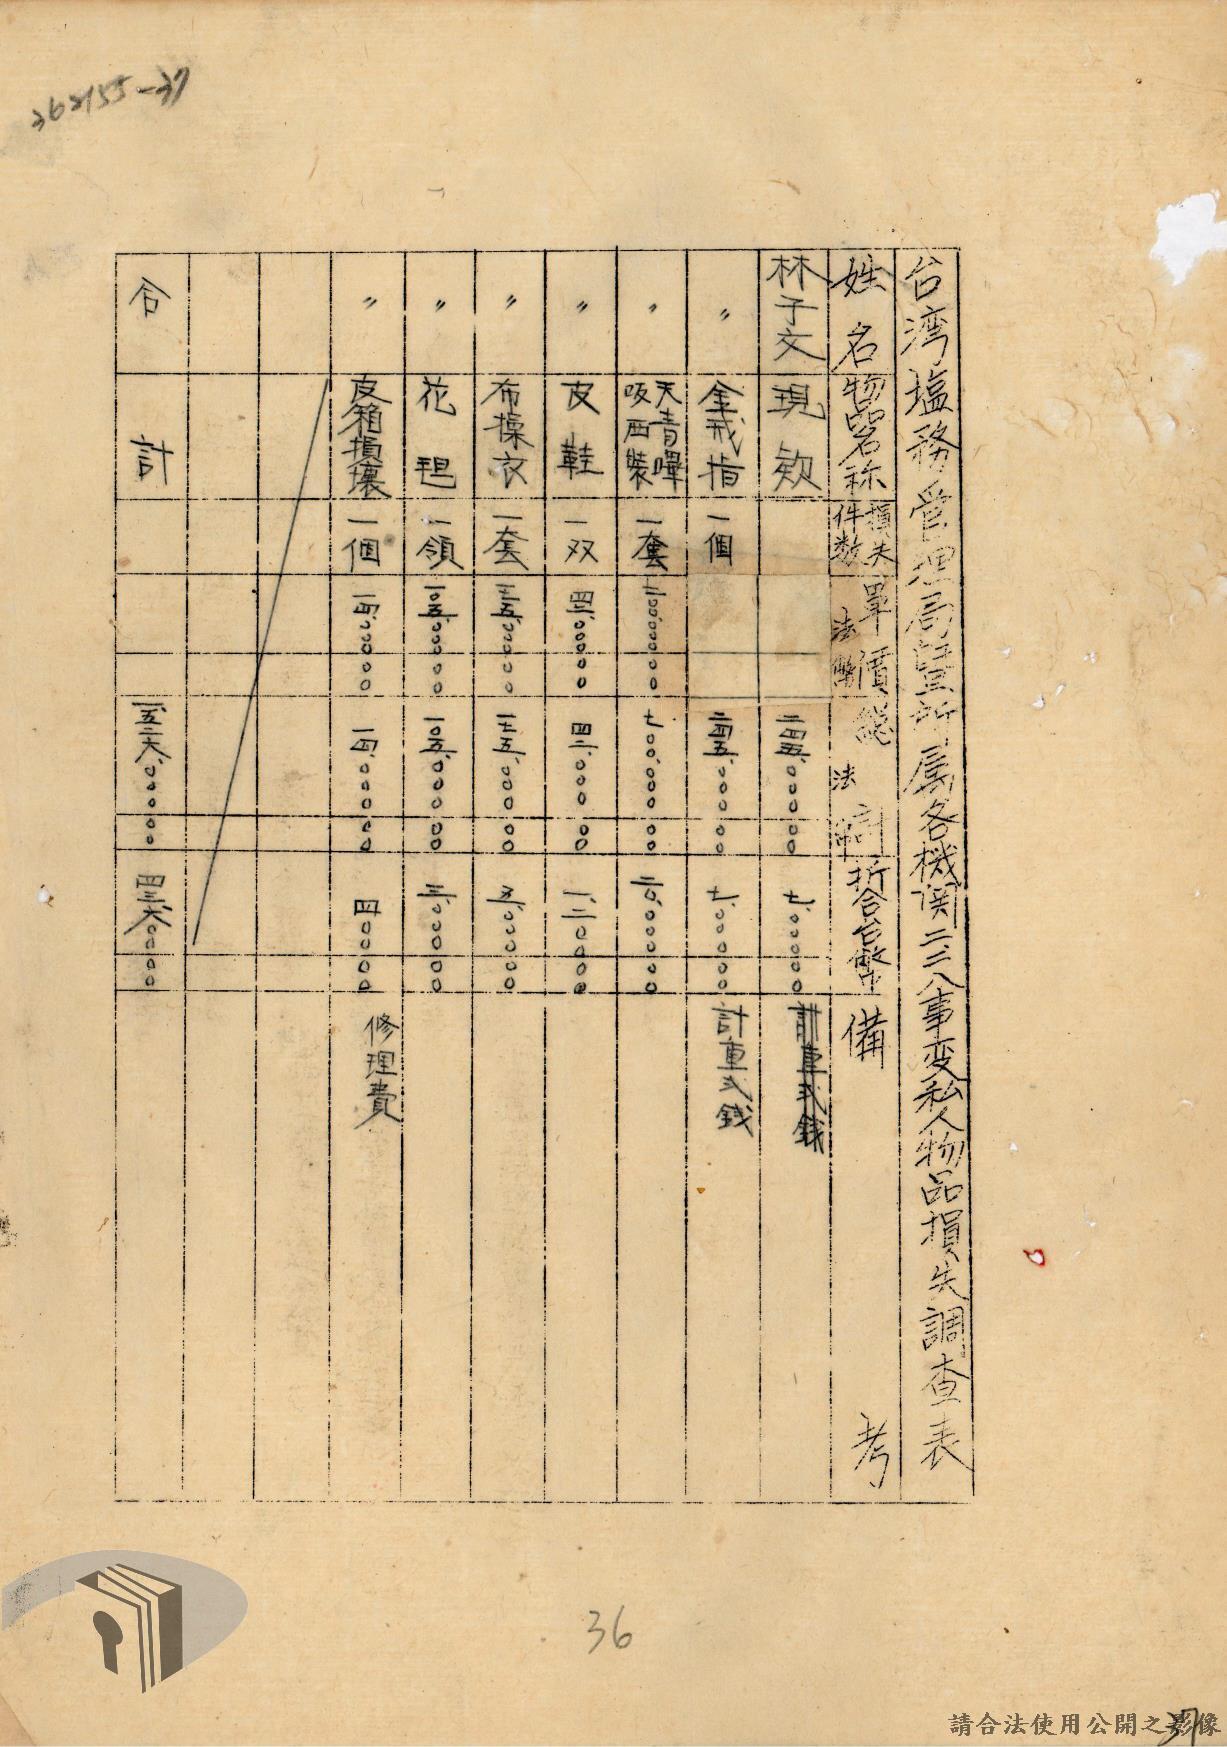 362155-37
台湾塩務管理局暨所属各機関二二八事変私人物品損失調查表
姓名 物品名称 損失件数 單價法幣 總計法幣 折合台幣 備考
林子文 現欵 二四五,〇〇〇〇〇 七,〇〇〇〇〇 計重弍錢
〃 金戒指 一個 二四五,〇〇〇〇〇 七,〇〇〇〇〇 計重弍錢
〃 天青嗶吱西裝 一套 七〇〇,〇〇〇〇〇 七〇〇,〇〇〇〇〇 二〇,〇〇〇〇〇
〃 皮鞋 一双 四二,〇〇〇〇〇 四二,〇〇〇〇〇 一,二〇〇〇〇
〃 布操衣 一套 一七五,〇〇〇〇〇 一七五,〇〇〇〇〇 五,〇〇〇〇〇
〃 花毯 一領 一〇五,〇〇〇〇〇 一〇五,〇〇〇〇〇 三,〇〇〇〇〇
〃 皮箱損壞 一個 一四,〇〇〇〇〇 一四,〇〇〇〇〇 四〇〇〇〇 修理費
合計 一,五二六,〇〇〇〇〇 四三,六〇〇〇〇
36
37
請合法使用公開之影像